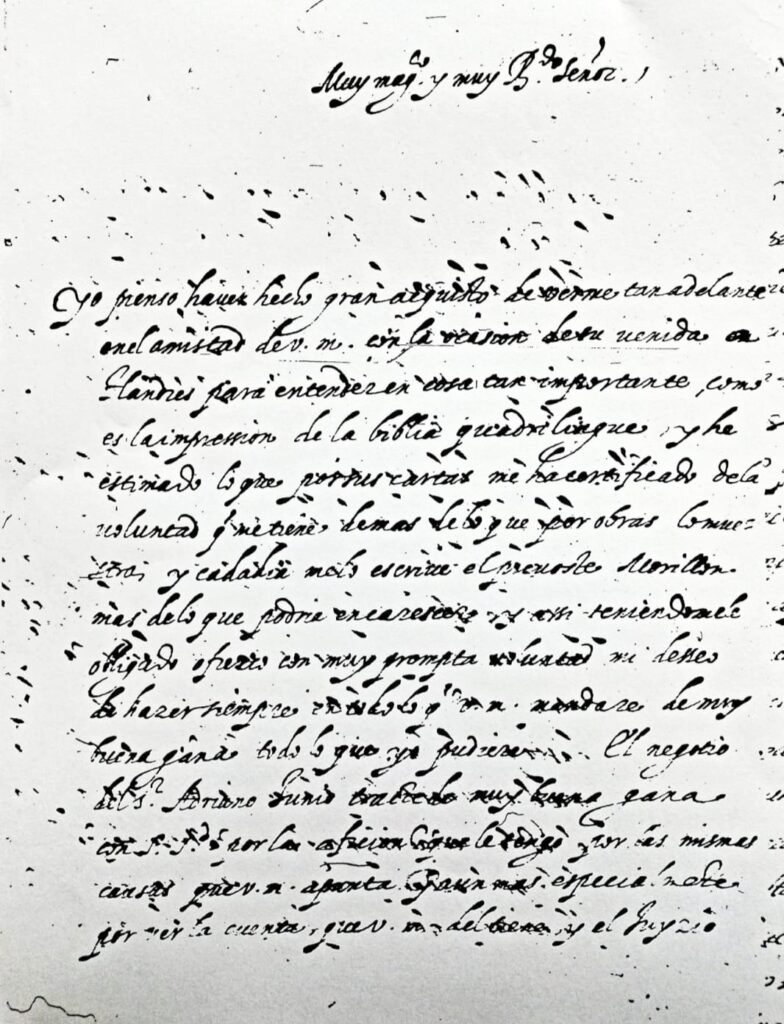 Muy magco. y muy Rdo. señor.
Yo pienso haver hecho gran aquisto de verme tan adelante
en el amistad de v. m. con la ocasion de su venida en
Flandes para entender en cosa tan importante, como
es la impression de la biblia quadrilingue, y he
estimado lo que por sus cartas me ha certificado de la
voluntad q̃ me tiene demas de lo que por obras lo mues=
tra, y cada dia me lo escrive el prevoste Morillon
mas de lo que podria encarescer, y assi teniendome
obligado ofrezco con muy prompta voluntad mi desseo
de hazer siempre en todo lo q̃ v. m. mandare de muy
buena gana todo lo que yo pudiere. El negotio
del sr. Adriano Junio tractare de muy buena gana
con por la aficion que le tengo, por las mismas
causas que v. m. apunta, y aun mas especialmẽte
por ver la cuenta, que v. m. del tiene, y el Juyzio